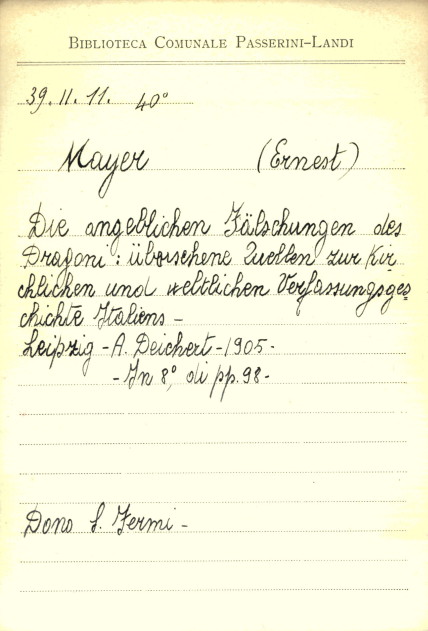 BIBLIOTECA COMUNALE PASSERINI-LANDI
39. II. 11. 40°
Mayer (Ernest)
Die angeblichen Fälschungen des
Dragoni: überschene Quellen zur Kir
chlichen und weltlichen Verfassungsges
chichte Italiens -
Leipzig - A. Deichert - 1905 -
- In 8°, di pp. 98 -
Dono S. Fermi -